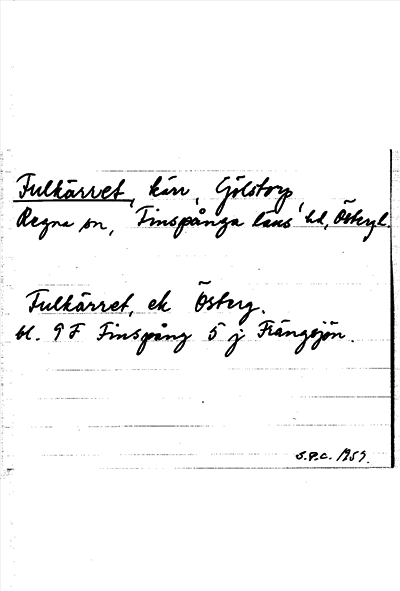 Fulkärret, kärr, Gölstorp,
Regna sn, Finspånga läns hd, Östergl.
Fulkärret, ek Österg.
bl. 9 F Finspång 5 j Frängsjön.
S.P.C. 1959.